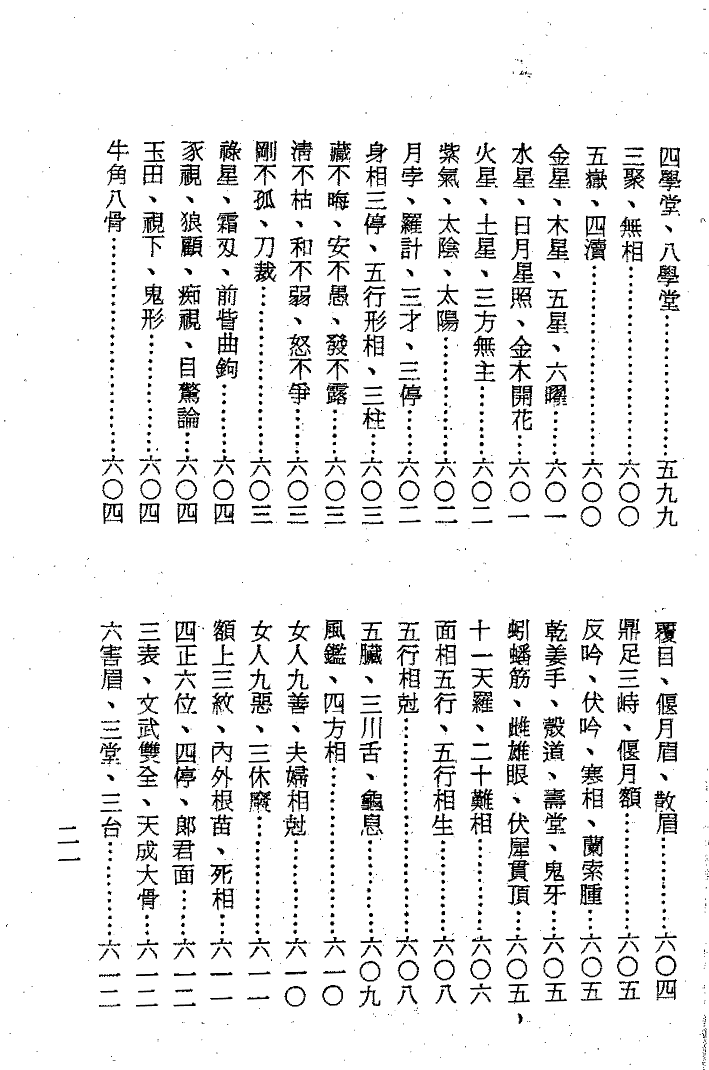 四學堂、八學堂………………五九九
三聚、無相………………六〇〇
五嶽、四瀆………………六〇〇
金星、木星、五星、六曜………六〇一
水星、日月星照、金木開花……六〇一
火星、土星、三方無主…………六〇二
紫氣、太陰、太陽………………六〇二
月孛、羅計、三才、三停………六〇二
身相三停、五行形相、三柱……六〇三
藏不晦、安不愚、發不露………六〇三
清不枯、和不弱、怒不爭………六〇三
剛不孤、刀裁………………六〇三
祿星、霜刄、前眥曲鉤…………六〇四
豕視、狼顧、痴視、目驚論……六〇四
玉田、視下、鬼形………………六〇四
牛角八骨………………六〇四
覆目、偃月眉、散眉……………六〇四
鼎足三峙、偃月額………………六〇五
反吟、伏吟、寒相、蘭索腫……六〇五
乾姜手、殼道、壽堂、鬼牙……六〇五
蚓蟠筋、雌雄眼、伏犀貫頂……六〇五
十一天羅、二十難相……………六〇六
面相五行、五行相生……………六〇八
五行相尅………………六〇八
五臟、三川舌、龜息……………六〇九
風鑑、四方相………………六一〇
女人九善、夫婦相尅……………六一〇
女人九惡、三休廢………………六一一
額上三紋、內外根苗、死相……六一一
四正六位、四停、郎君面………六一二
三表、文武雙全、天成大骨……六一二
六害眉、三堂、三台……………六一二
二一